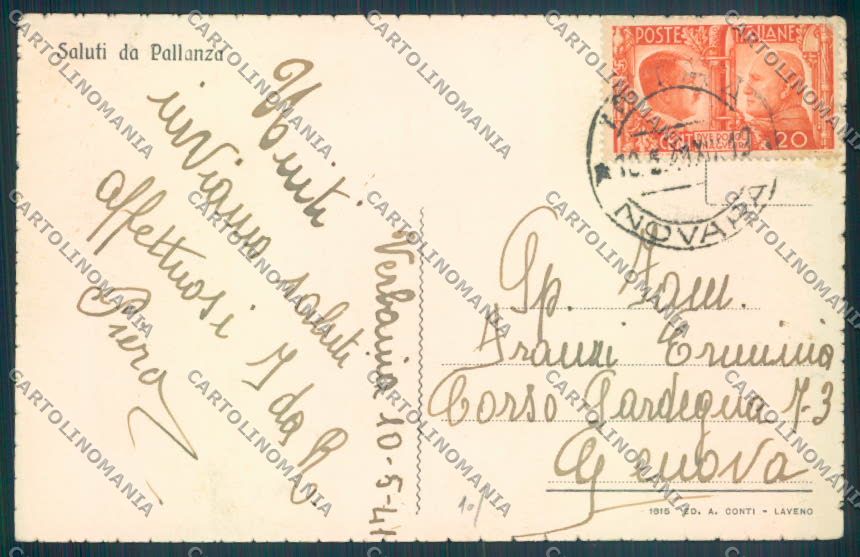 Saluti da Pallanza
Uniti
inviamo saluti
affettuosi
Piera
Verbania 10-5-41
POSTE ITALIANE
DUE POPOLI
UNA GUERRA
CENT 20
10.5.41
NOVARA
Sp. Fam.
Franzi Erminio
Corso Sardegna 7-3
Genova
1615 ED. A. CONTI - LAVENO
CARTOLINOMANIA